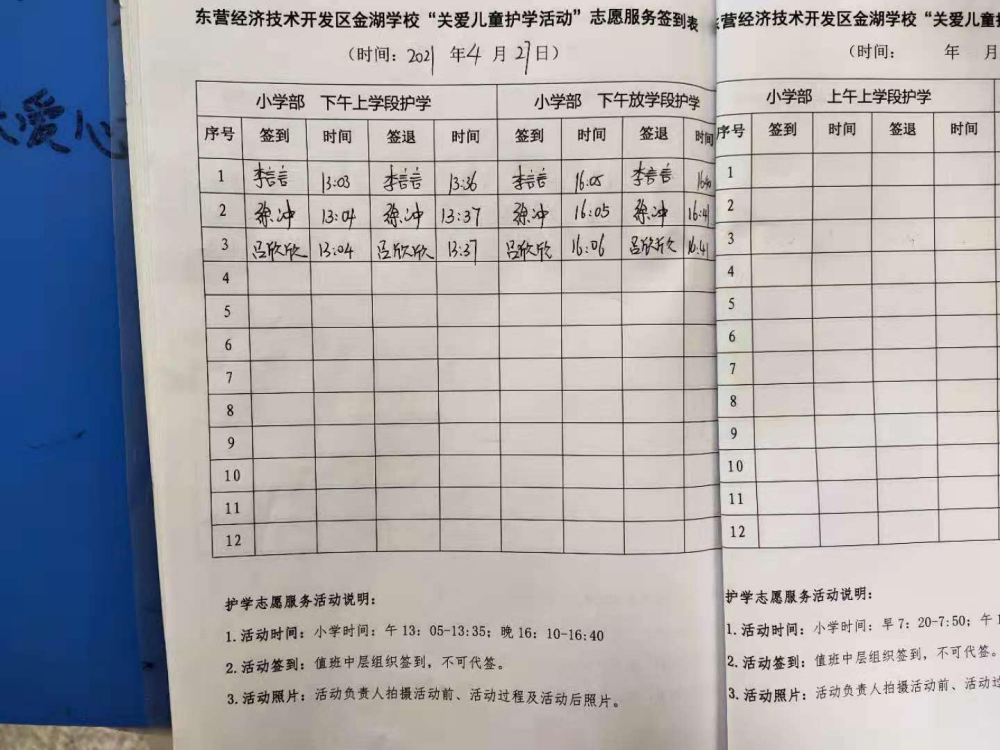 爱心
东营经济技术开发区金湖学校“关爱儿童护学活动”志愿服务签到表
（时间：2021 年 4 月 27 日）
小学部 下午上学段护学 小学部 下午放学段护学
序号 签到 时间 签退 时间 签到 时间 签退 时间
1 李言言 13:03 李言言 13:36 李言言 16:05 李言言 16:40
2 徐冲 13:04 徐冲 13:37 徐冲 16:05 徐冲 16:41
3 吕欣欣 13:04 吕欣欣 13:37 吕欣欣 16:06 吕欣欣 16:41
4
5
6
7
8
9
10
11
12
护学志愿服务活动说明：
1.活动时间：小学时间：午 13：05-13:35；晚 16：10-16:40
2.活动签到：值班中层组织签到，不可代签。
3.活动照片：活动负责人拍摄活动前、活动过程及活动后照片。
东营经济技术开发区金湖学校“关爱儿童
（时间： 年 月
小学部 上午上学段护学
序号 签到 时间 签退 时间
1
2
3
4
5
6
7
8
9
10
11
12
护学志愿服务活动说明：
1.活动时间：小学时间：早 7：20-7:50；午 1
2.活动签到：值班中层组织签到，不可代签。
3.活动照片：活动负责人拍摄活动前、活动过